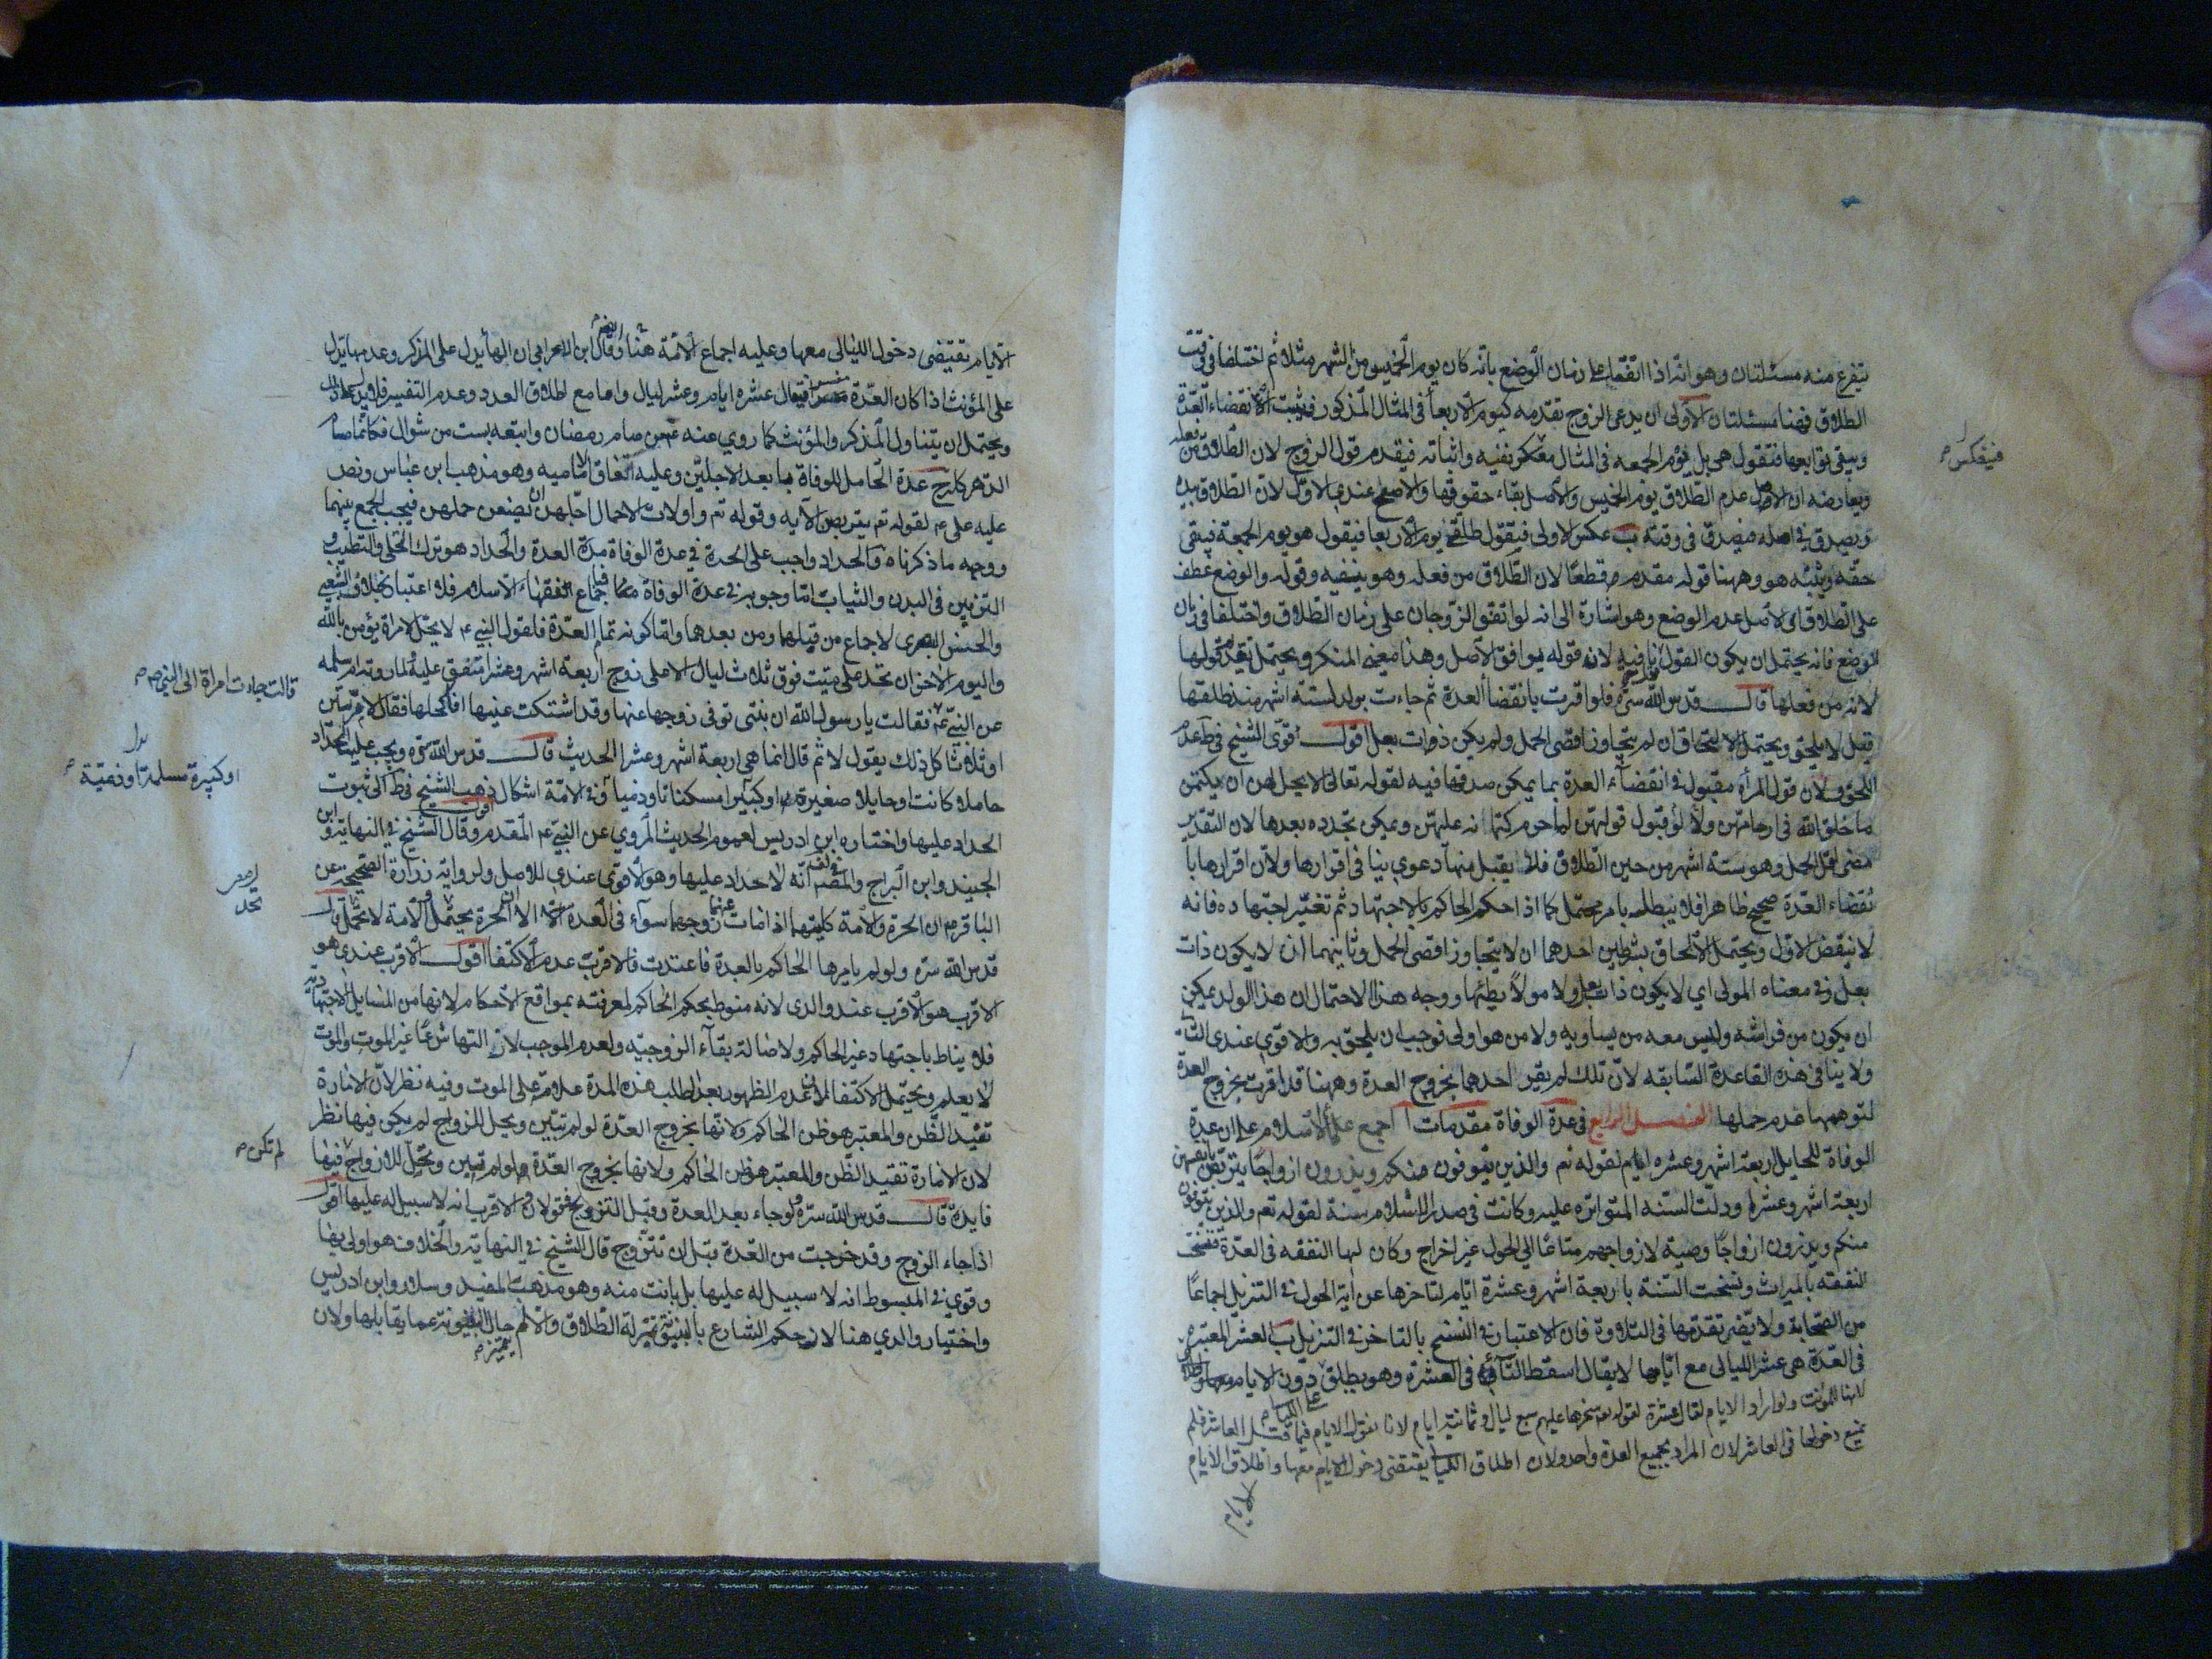 يتفرع منه مسئلتان وهو انه اذا اتفقا على زمان الوضع بانه كان يوم الخميس من الشهر مثلا ثم اختلفا في وقت
الطلاق فهنا مسئلتان الاولى ان يدعى الزوج تقدمه كيوم الاربعا في المثال المذكور فيثبت الانقضاء العدة
وينفى توابعها فتقول هي بل يوم الجمعه في المثال نفيه واثباته فيقدم قول الزوج لان الطلاق من فعله
ويعارضه ان الاصل عدم الطلاق يوم الخميس والاصل بقاء حقوقها والاصح عندي الاول لان الطلاق بيده
ويصدق في اصله فيصدق في وقته ب عكس الاولى فيقول طلقتك يوم الاربعا فيقول هو يوم الجمعة فيبقى
حقه ويثبته هو وههنا قوله مقدم قطعا لان الطلاق من فعله وهو ينفيه وقوله والوضع عطف
على الطلاق اى الاصل عدم الوضع وهو اشارة الى انه لو اتفق الزوجان على زمان الطلاق واختلفا في زمان
الوضع فانه يحتمل ان يكون القول نافيه لان قوله يوافق الاصل وهذا معنى المنكر ويحتمل تقديم قولها
لانه من فعلها قال قدس الله سره فلو اقرت بانقضا العدة ثم جاءت بولد لستة اشهر منذ طلقها
قيل لا يلحق ويحتمل الالتحاق ان لم يتجاوز اقصى الحمل ولم يكن ذوات بعل اقول قوى الشيخ في ط عدم
اللحوق لان قول المراة مقبول في انقضاء العدة بما يمكن صدقها فيه لقوله تعالى لا يحل لهن ان يكتمن
ما خلق الله في ارحامهن ولولا قبول قولهن لما حرم كتمانه عليهن ويمكن تجدده بعدها لان التقدير
مضى اقل الحمل وهو ستة اشهر من حين الطلاق فلا يقبل منها دعوى ينافي اقرارها ولان اقرارها با
نقضاء العدة صحيح ظاهرا فلا يبطله بامر محتمل كما اذا حكم الحاكم بالاجتهاد ثم تغير اجتهاده فانه
لا ينقض الاول ويحتمل الالحاق بشرطين احدهما ان لا يتجاوز اقصى الحمل وثانيهما ان لا يكون ذات
بعل وفي معناه المولى اي لا يكون ذا بعل ولا مولا يطئها ووجه هذا الاحتمال ان هذا الولد يمكن
ان يكون من فراشه وليس معه من يساويه ولا من هو اولى فوجب ان يلحق به والاقوى عندى الثانى
ولا ينافي هذه القاعدة السابقه لان تلك لم يقر احدهما بخروج العدة وههنا قد اقرت بخروج العدة
لتوهمها عدم حملها الفصل الرابع في عدة الوفاة مقدمات ا اجمع علماء الاسلام على ان عدة
الوفاة للحايل اربعة اشهر وعشره ايام لقوله تعم والذين يتوفون منكم ويذرون ازواجا يتربصن بانفسهن
اربعة اشهر وعشرا ودلت السنه المتواتره عليه وكانت في صدر الاسلام سنة لقوله تعم والذين يتوفون
منكم ويذرون ازواجا وصية لازواجهم متاعا الى الحول غير اخراج وكان لها النفقه في العدة فنسخت
النفقه بالميراث ونسخت السنة باربعة اشهر وعشرة ايام لتاخرها عن اية الحول في التنزيل اجماعا
من الصحابة ولا يضر تقدمها في التلاوة فان الاعتبار في النسخ بالتاخر في التنزيل ب العشر المعتبر
في العدة هى عشر الليالى مع ايامها لا يقال اسقط التاء في العشرة وهو يطلق دون الايام
لانها للمونث ولو اراد الايام لقال عشرة لقوله تعم سخرها عليهم سبع ليال وثمانية ايام لانا نقول الايام فيما قبل العاشر فلم
يمنع دخولها في العاشر لان المراد بجميع العدة واحد ولان اطلاق الليالى يقتضى دخول الايام معها واطلاق الايام
الايام يقتضى دخول الليالى معها وعليه اجماع الائمة هنا وقال ابن الاعرابي ان الهاء يدل على المذكر وعدمها يدل
على المؤنث اذا كان العدة مفسرا فيقال عشره ايام وعشر ليال واما مع اطلاق العدد وعدم التفسير فلا يدل
ويحتمل ان يتناول المذكر والمؤنث كما روي عنه عم من صام رمضان واتبعه بست من شوال فكانما صام
الدهر كله ج عدة الحامل للوفاة بابعد الاجلين وعليه اتفاق الاماميه وهو مذهب ابن عباس ونص
عليه على عم لقوله تعم يتربصن الآيه وقوله تعم واولات الاحمال اجلهن ان يضعن حملهن فيجب الجمع بينهما
ووجهه ما ذكرناه د الحداد واجب على الحرة في عدة الوفاة مدة العدة والحداد هو ترك الحلى والتطيب و
التزيين في البدن والثياب اما وجوبه في عدة الوفاة فباجماع فقهاء الاسلام فلا اعتبار بخلاف الشعبي
والحسن البصرى لاجماع من قبلهما ومن بعدهما واما كونه تمام العدة فلقول النبي عم لا يحل لامراة يؤمن بالله
واليوم الاخر ان تحد على ميت فوق ثلاث ليال الا على زوج اربعة اشهر وعشرا متفق عليه ولما روته ام سلمه
عن النبي عم فقالت يا رسول الله ان بنتى توفى زوجها عنها وقد اشتكت عينها افاكحلها فقال لا مرتين
او ثلاثا كل ذلك يقول لا ثم قال انما هى اربعة اشهر وعشر الحديث قال قدس الله سره ويجب عليها الحداد
حاملا كانت او حايلا صغيرة او كبيرا وفي الامة اشكال اقول ذهب الشيخ في ط الى ثبوت
الحداد عليها واختاره ابن ادريس لعموم الحديث المروي عن النبي عم المقدم وقال الشيخ في النهاية وابن
الجنيد وابن البراج والمصنف في لف انه لا حداد عليها وهو الاقوى عندي للاصل ولرواية زرارة الصحيحة عن
الباقر عم ان الحرة والامة كليتهما اذا مات عنهما زوجهما سوآء في العدة الا ان الحرة تحد والامة لا تحد قال
قدس الله سره ولو لم يامرها الحاكم بالعدة فاعتدت فالاقرب عدم الاكتفا اقول الاقرب عندى هو
الاقرب هو الاقرب عند والدى لانه منوط بحكم الحاكم لمعرفته بمواقع الاحكام لانها من المسايل الاجتهادية
فلا يناط باجتهاد غير الحاكم ولاصالة بقآء الزوجيه ولعدم الموجب لان التهاشرعا غير الموت والموت
لا يعلم ويحتمل الاكتفا لان عدم الظهور بعد الطلب هذه المدة علامة على الموت وفيه نظر لان الامارة
تفيد الظن والمعتبر هو ظن الحاكم ولانها بخروج العدة لو لم تبين ويحل للزواج لم يكن فيها نظر
لان الامارة تفيد الظن والمعتبر هو ظن الحاكم ولانها بخروج العدة ولو لم تبين ويحل للازواج فيها
فايدة قال قدس الله سره ولو جاء بعد العدة وقبل التزويج فقولان الاقرب انه لا سبيل له عليها اقول
اذا جاء الزوج وقد خرجت من العدة قبل ان تتزوج قال الشيخ في النهاية والخلاف هو اولى بها
وقوي في المبسوط انه لا سبيل له عليها بل بانت منه وهو مذهب المفيد وسلار وابن ادريس
واختيار والدي هنا لان حكم الشارع بالبينونة بمنزلة الطلاق والا لم عما يقابلها ولان
فينعكس
قالت جاءت امراة الى النبي صم
او كبيرة مسلمة او ذمية
تحد
لم تكن